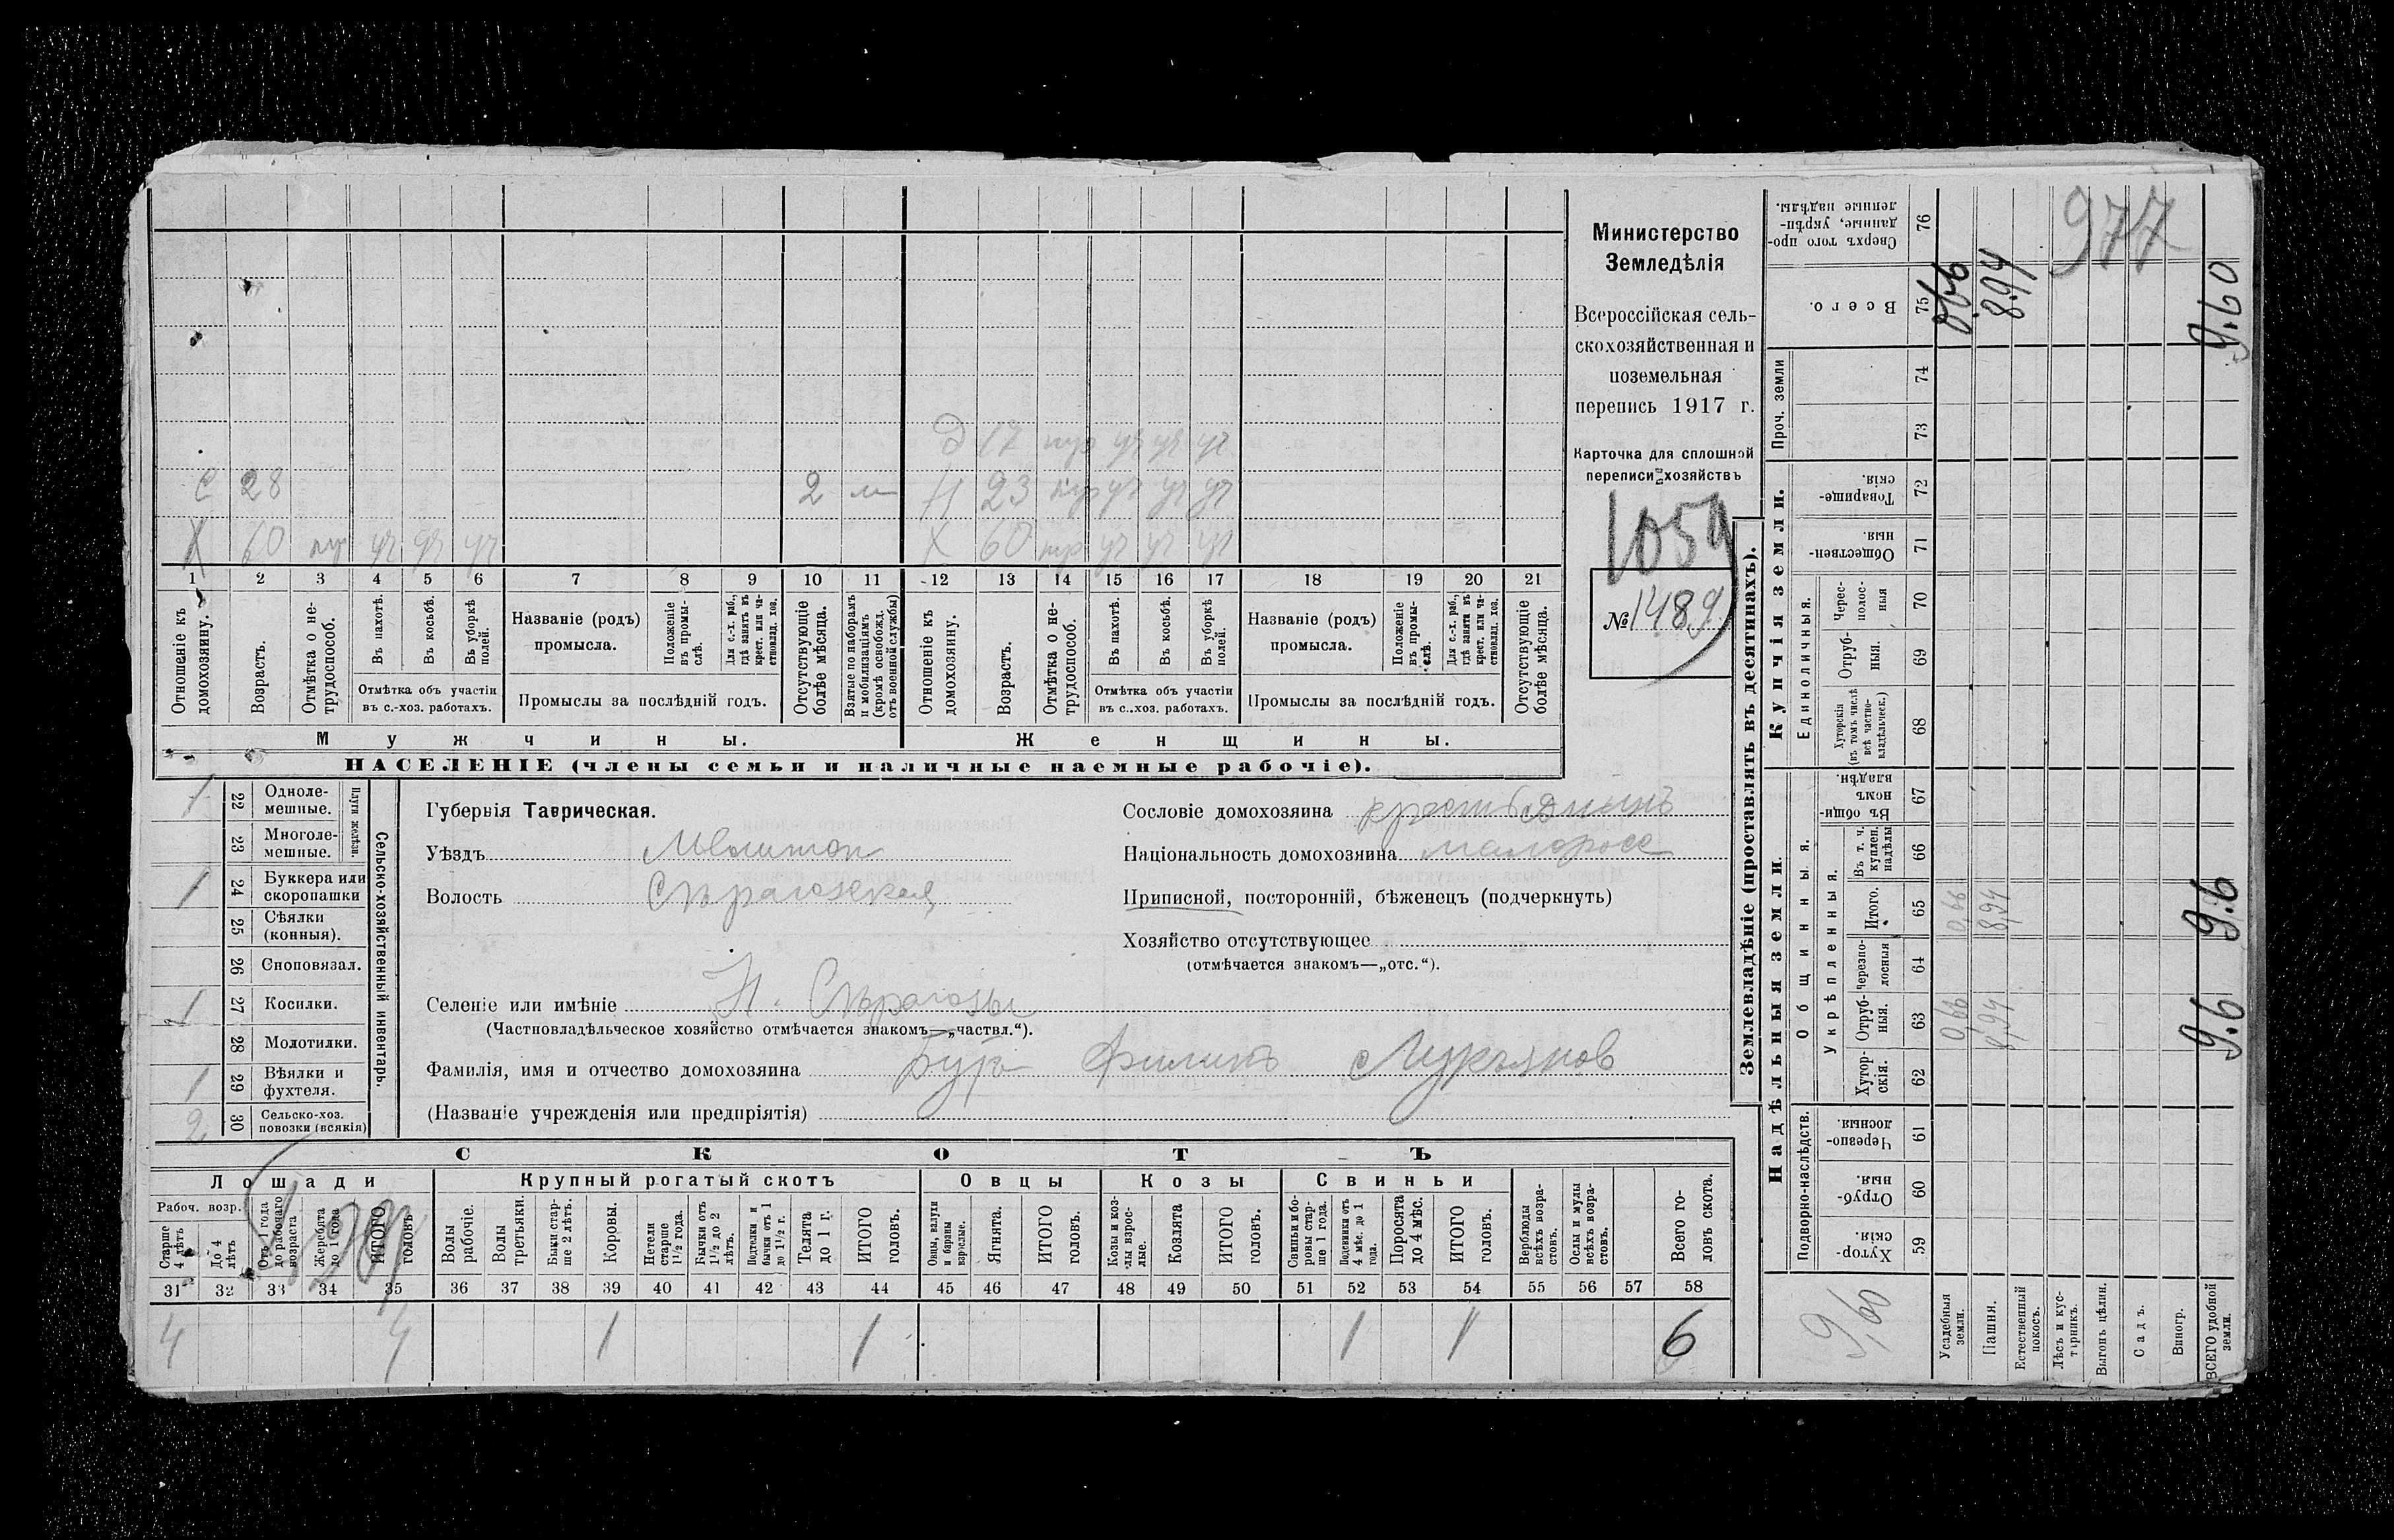 Д 17 нур уч уч уч
С 28 2 м Н 23 нур уч уч уч
Х 60 нур уч уч уч Х 60 нур уч уч уч
1 2 3 4 5 6 7 8 9 10 11 12 13 14 15 16 17 18 19 20 21
Отношеніе къ домохозяину.
Возрастъ.
Отмѣтка о не-
трудоспособ.
Въ пахотѣ.
Въ косьбѣ.
Въ уборкѣ полей.
Отмѣтка объ участіи
въ с.-хоз. работахъ.
Названіе (родъ)
промысла.
Положеніе
въ промы-
слѣ.
Для с.-х. раб.,
гдѣ занятъ въ
крест. или ча-
стновлад. хоз.
Промыслы за послѣдній годъ.
Отсутствующіе
болѣе мѣсяца.
Взятые по наборамъ
и мобилизаціямъ
(кромѣ освобожд.
отъ военной службы)
Отношеніе къ
домохозяину.
Возрастъ.
Отмѣтка о не-
трудоспособ.
Въ пахотѣ.
Въ косьбѣ.
Въ уборкѣ
полей.
Отмѣтка объ участіи
въ с..хоз. работахъ.
Названіе (родъ)
промысла.
Положеніе
въ промы-
слѣ.
Для с.-х. раб.,
гдѣ заняты въ
крест. или ча-
стновлад. хоз.
Промыслы за послѣдній годъ.
Отсутствующіе
болѣе мѣсяца.
Мужчины.
Женщины.
НАСЕЛЕНІЕ (члены семьи и наличные наемные рабочіе).
Министерство
Земледѣлія
Всероссійская сель-
скохозяйственная и
поземельная
перепись 1917 г.
Карточка для сплошной
переписи хозяйствъ
1059
№ 1489
1 22 Одноле-
мешные.
23 Многоле-
мешные.
Плуги желѣзн.
1 24 Буккера или
скоропашки
25 Сѣялки
(конныя).
26 Сноповязал.
1 27 Косилки.
28 Молотилки.
1 29 Вѣялки и
фухтеля.
2 30 Сельско-хоз.
повозки (всякія)
Сельско-хозяйственный инвентарь.
Губернія Таврическая.
Уѣздъ Мелитоп
Волость Сѣрагозская
Селеніе или имѣніе Н. Сѣрогозы
(Частновладѣльческое хозяйство отмѣчается знакомъ—„частвл.“).
Фамилія, имя и отчество домохозяина Филипъ Лукьянов
(Названіе учрежденія или предпріятія)
Сословіе домохозяина крестьянинъ
Національность домохозяина малоросс
Приписной, посторонній, бѣженецъ (подчеркнуть)
Хозяйство отсутствующее
(отмѣчается знакомъ—„отс.“).
СКОТЪ
Лошади
Рабоч. возр.
Старше
4 лѣтъ
До 4
лѣтъ
Отъ 1 года
до рабочаго
возраста
Жеребята
до 1 года
ИТОГО
головъ
Крупный рогатый скотъ
Волы
рабочіе.
Волы
третьяки.
Быки стар-
ше 2 лѣтъ.
Коровы.
Нетели
старше
1½ года.
Бычки отъ
1½ до 2
лѣтъ.
Подтелки и
бычки отъ 1
до 1½ г.
Телята
до 1 г.
ИТОГО
головъ.
Овцы
Овцы, валухи
и бараны
взрослые.
Ягнята.
ИТОГО
головъ.
Козы
Козы и коз-
лы взрос-
лые.
Козлята
ИТОГО
головъ.
Свиньи
Свиньи и бо-
ровы стар-
ше 1 года.
Подсвинки отъ
4 мѣс. до 1
года.
Поросята
до 4 мѣс.
ИТОГО
головъ.
Верблюды
всѣхъ возра-
стовъ.
Ослы и мулы
всѣхъ возра-
стовъ.
Всего го-
ловъ скота.
31 32 33 34 35 36 37 38 39 40 41 42 43 44 45 46 47 48 49 50 51 52 53 54 55 56 57 58
4 4 1 1 1 1 6
Землевладѣніе (проставлять въ десятинахъ).
Надѣльныя земли.
Подворно-наслѣдств.
Хутор-
скія.
59
Отруб-
ныя.
60
Черезпо-
лосныя.
61
Общинныя.
Укрѣпленныя.
Хутор-
скія.
62
Отруб-
ныя.
63
Черезпо-
лосныя
64
Итого.
65
Въ т. ч.
куплен.
надѣлы
66
Въ общи-
номъ
владѣн.
67
Купчія земли.
Единоличныя.
Хуторскія
(въ томъ числѣ
всѣ частно-
владѣльческ.)
68
Отруб-
ныя.
69
Черес-
полос-
ныя
70
Обществен-
ныя.
71
Товарище-
скія.
72
Проч. земли
73
74
Всего.
75
Сверхъ того про-
данные, укрѣп-
ленные надѣлы.
76
9,60
Усадебныя
земли.
0,66 0,66 0,66
Пашня.
8,94 8,94 8.94
Естественный
покосъ.
Лѣсъ и кус-
тарникъ.
Выгонъ цѣлин.
Садъ.
Виногр.
ВСЕГО удобной
земли.
9.6 9.6 9.60
977